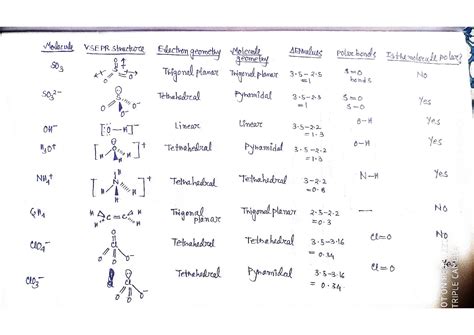 Molecule VSEPR structure Electron geometry Molecule geometry ΔEN values Polar bonds Is the molecule polar?
SO₃ Trigonal planar Trigonal planar 3.5-2.5 =1 S=O bonds No
SO₃²⁻ Tetrahedral Pyramidal 3.5-2.5 =1 S=O S-O Yes
OH⁻ [:O-H]⁻ Linear Linear 3.5-2.2 =1.3 O-H Yes
H₃O⁺ Tetrahedral Pyramidal 3.5-2.2 =1.3 O-H Yes
NH₄⁺ Tetrahedral Tetrahedral 3-2.2 =0.8 N-H Yes
Trigonal planar Trigonal planar 2.5-2.2 =0.3 — No
ClO₄⁻ Tetrahedral Tetrahedral 3.5-3.16 =0.34 Cl=O No
ClO₃⁻ Tetrahedral Pyramidal 3.5-3.16 =0.34 Cl=O Yes